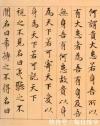 何謂貴大患若身吾所以
有大患者為吾有身及吾
無身吾有何患故貴以身
為天下者可寄天下愛以
身為天下者可託天下
視之不見名曰夷聽之不
聞名曰希搏之不得名曰